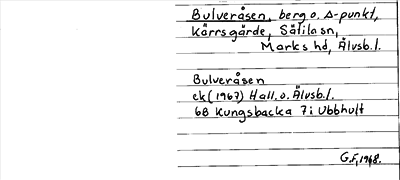 Bulveråsen, berg o. Δ-punkt,
Kärrsgärde, Sätila sn,
Marks hd, Älvsb.l.
Bulveråsen
ek (1967) Hall. o. Älvsb.l.
6B Kungsbacka 7i Ubbhult
G.F, 1968.